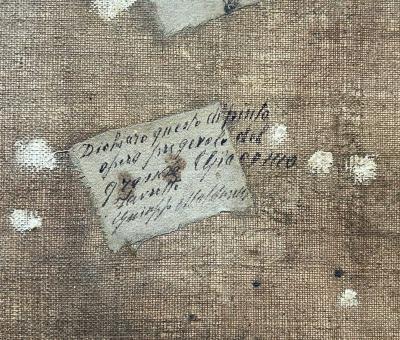 Dichiaro questo dipinto
opera pregevole del
Giacomo
Favretto
Giuseppe